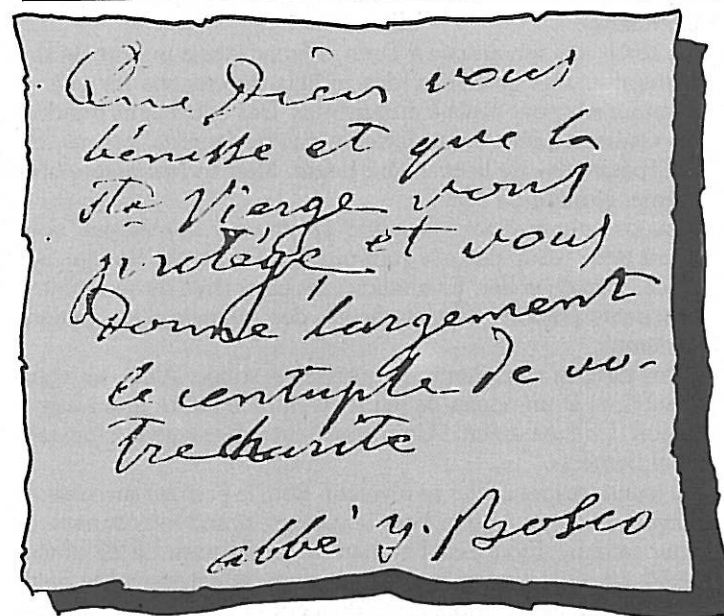 Que Dieu vous
bénisse et que la
Ste Vierge vous
protège et vous
Donne largement
le centuple de vo-
tre charité
abbé J. Bosco